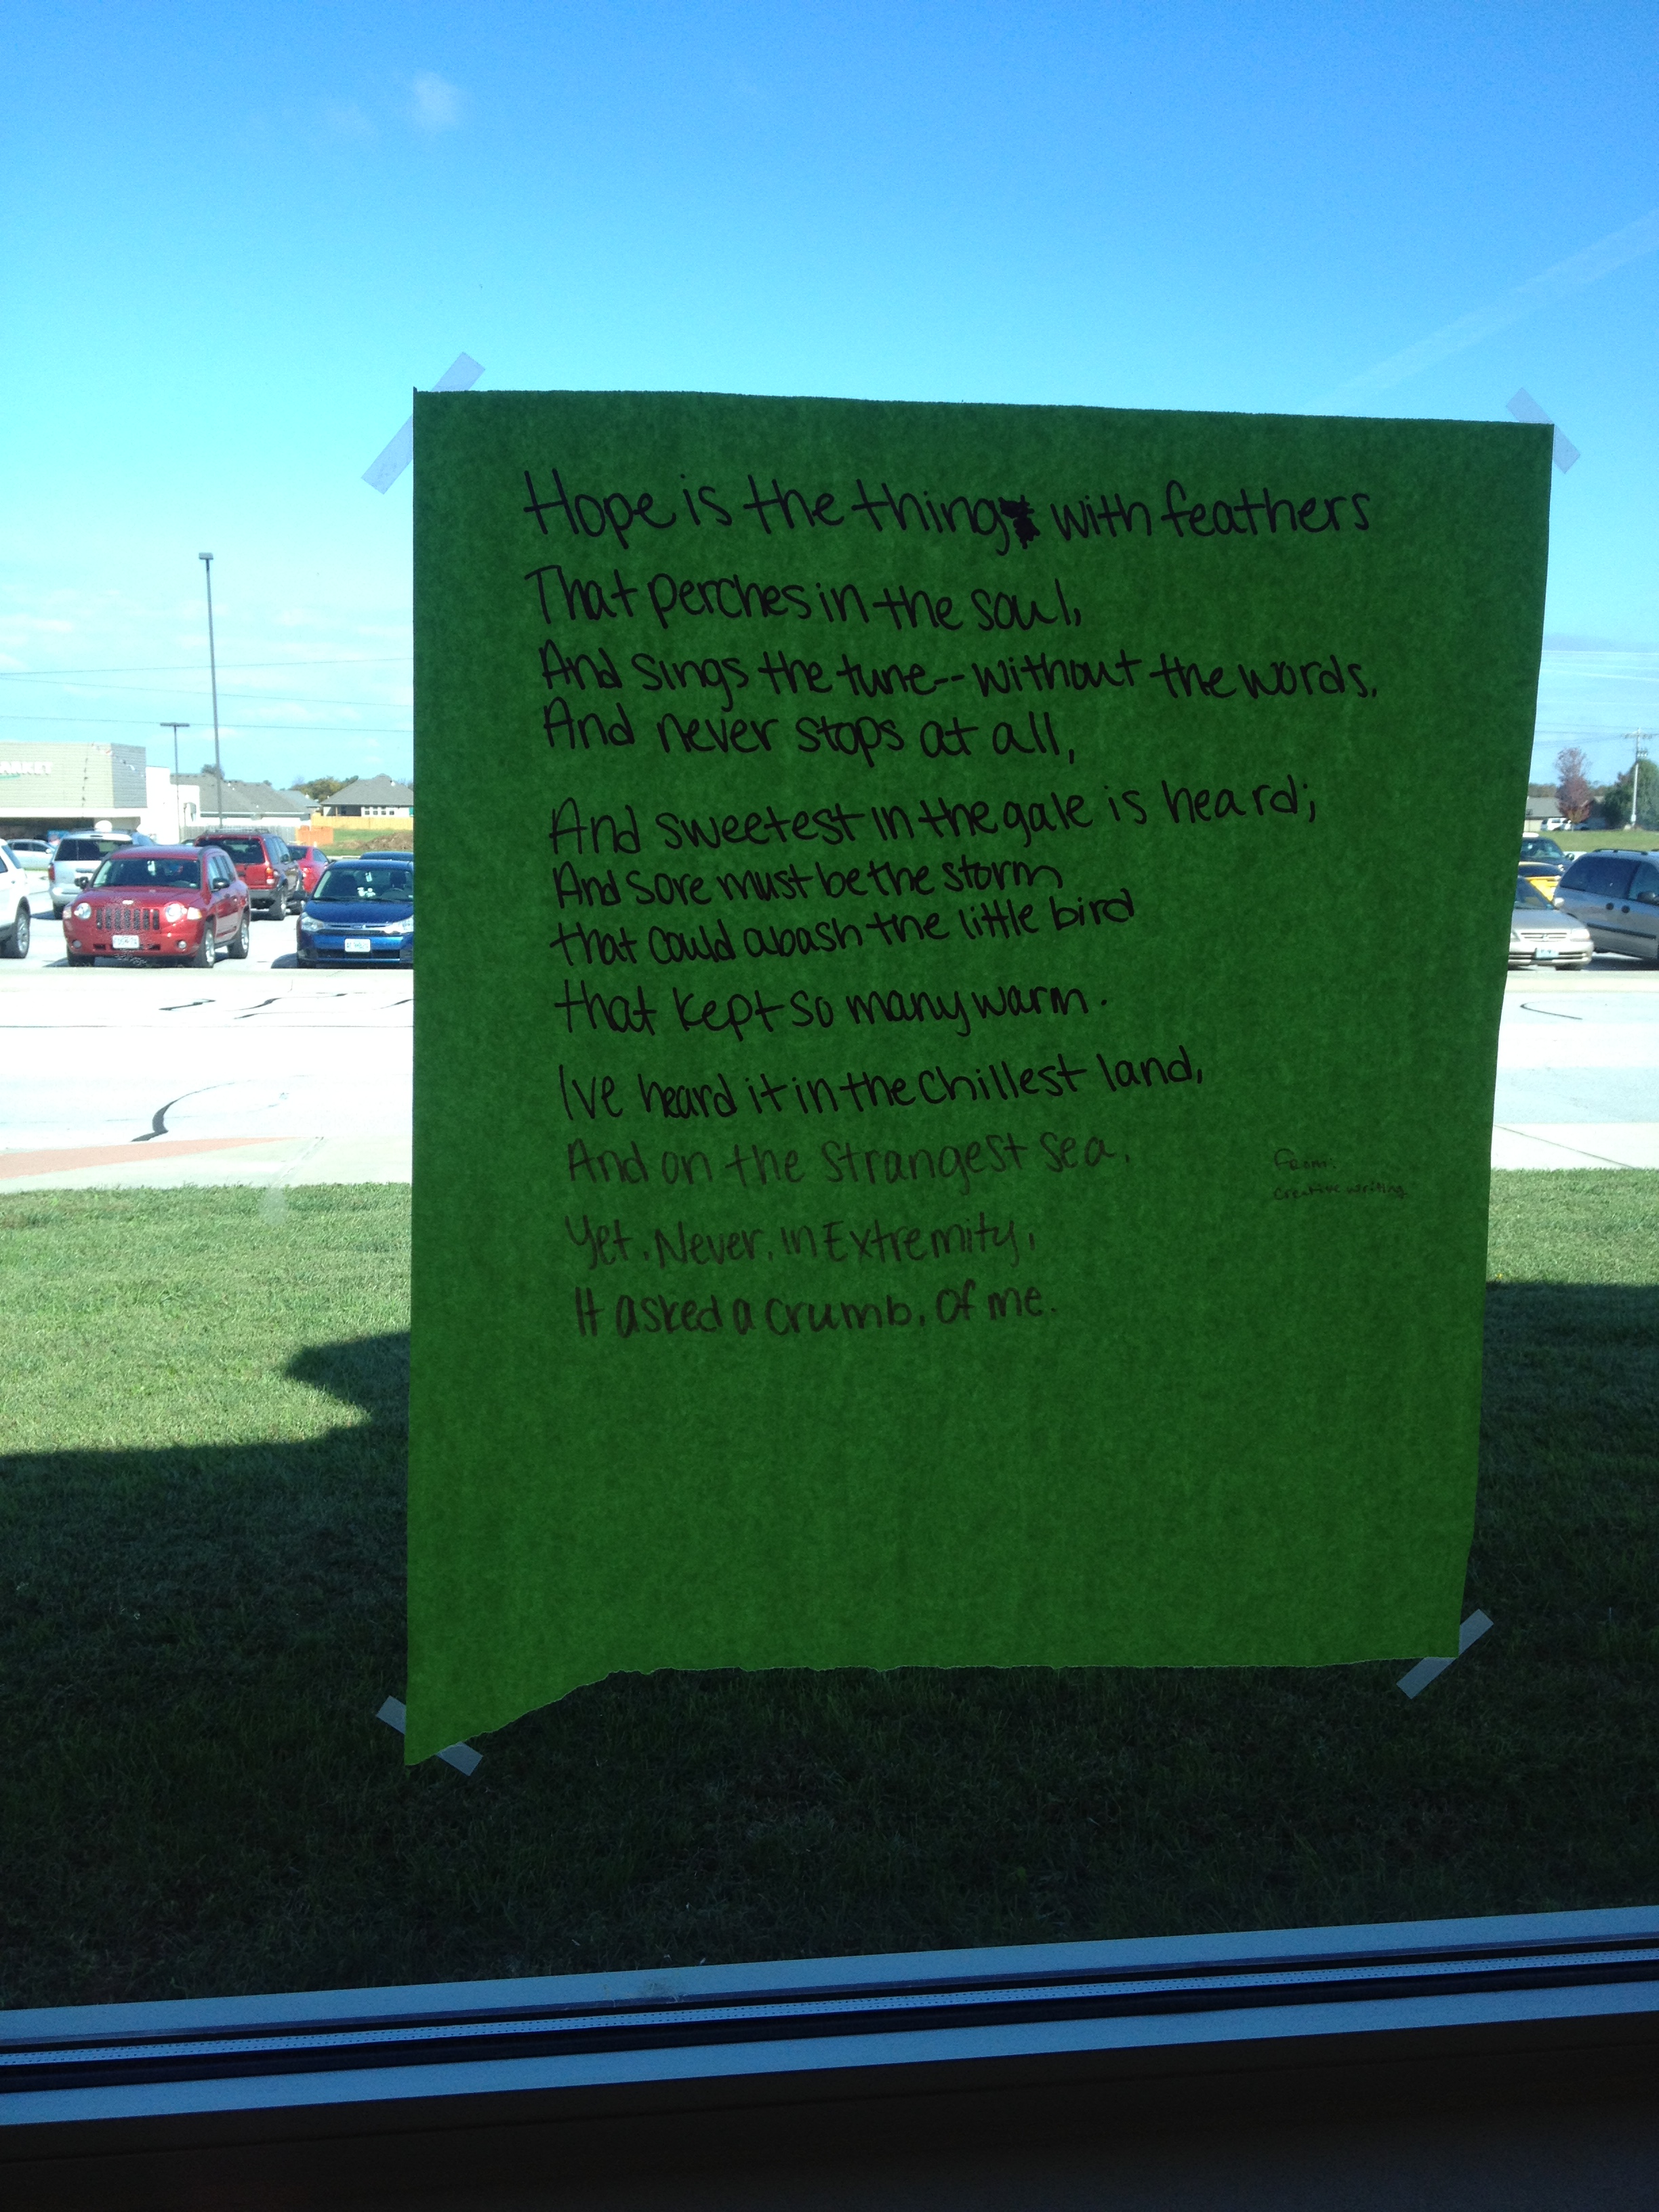 Hope is the thing with feathers
That perches in the soul,
And sings the tune--without the words,
And never stops at all,
And sweetest in the gale is heard;
And sore must be the storm
that could abash the little bird
that kept so many warm.
Ive heard it in the chillest land,
And on the strangest sea.
Yet, Never, in Extremity,
It asked a crumb, of me.
From:
Creative writing